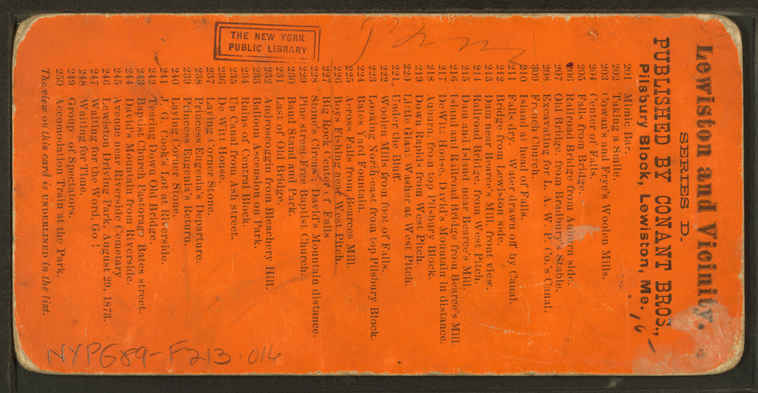 Lewiston and Vicinity.
SERIES D.
PUBLISHED BY CONANT BROS.,
Pilsbury Block, Lewiston, Me.
16
201 Mimic Bar.
202 Taking a Smile.
203 Cowan and Frye's Woolen Mills.
204 Center of Falls.
205 Falls from Bridge.
206 Railroad Bridge from Auburn side.
207 Old Bridge from Bradbury's Stable.
208 Excavating for L. A. W. P. Co.'s Canal.
209 French Church.
210 Island at head of Falls.
211 Falls dry. Water drawn off by Canal.
212 Bridge from Lewiston side.
213 Dam near Bearce's Mill, front view.
214 Railroad Bridge from West Pitch.
215 Dam and Island near Bearce's Mill.
216 Island and Railroad Bridge from Bearce's Mill.
217 DeWitt House, David's Mountain in distance.
218 Auburn, from top Pilsbury Block.
219 Down Rapids from West Pitch.
220 Dry Gulch. Water at West Pitch.
221 Under the Bluff
222 Woolen Mills from foot of Falls.
223 Looking North-east from top Pilsbury Block.
224 Bates Yard Fountain.
225 Across Falls from Bearces Mill.
226 Jerry's Oning near West Pitch.
227 Big Rock Center of Falls
228 Stone's Circus. David's Mountain distance.
229 Pine street Free Baptist Church
230 Band Stand and Park.
231 Last of Old Bridge.
232 Androscoggin from Bleachery Hill.
233 Balloon Ascension on Park.
234 Ruins of Central Block.
235 Up Canal from Ash street.
236 De Witt House.
237 Laying Corner Stone.
238 Princess Eugenia's Departure.
239 Princess Eugenia's Return.
240 Laying Corner Stone.
241 J. G. Cook's Lot at Riverside.
242 Tearing Down Old Bridge.
243 Baptist Church Parsonage Bates street.
244 David's Mountain from Riverside.
245 Avenue near Riverside Cemetary
246 Lewiston Driving Park, August 29, 1873.
247 Waiting for the Word, Go!
248 Waiting for Time.
249 Group of Spectators.
250 Accomodation Train at the Park.
The view on this card is UNDERLINED in the list.
THE NEW YORK
PUBLIC LIBRARY
NYPG89-F213.016